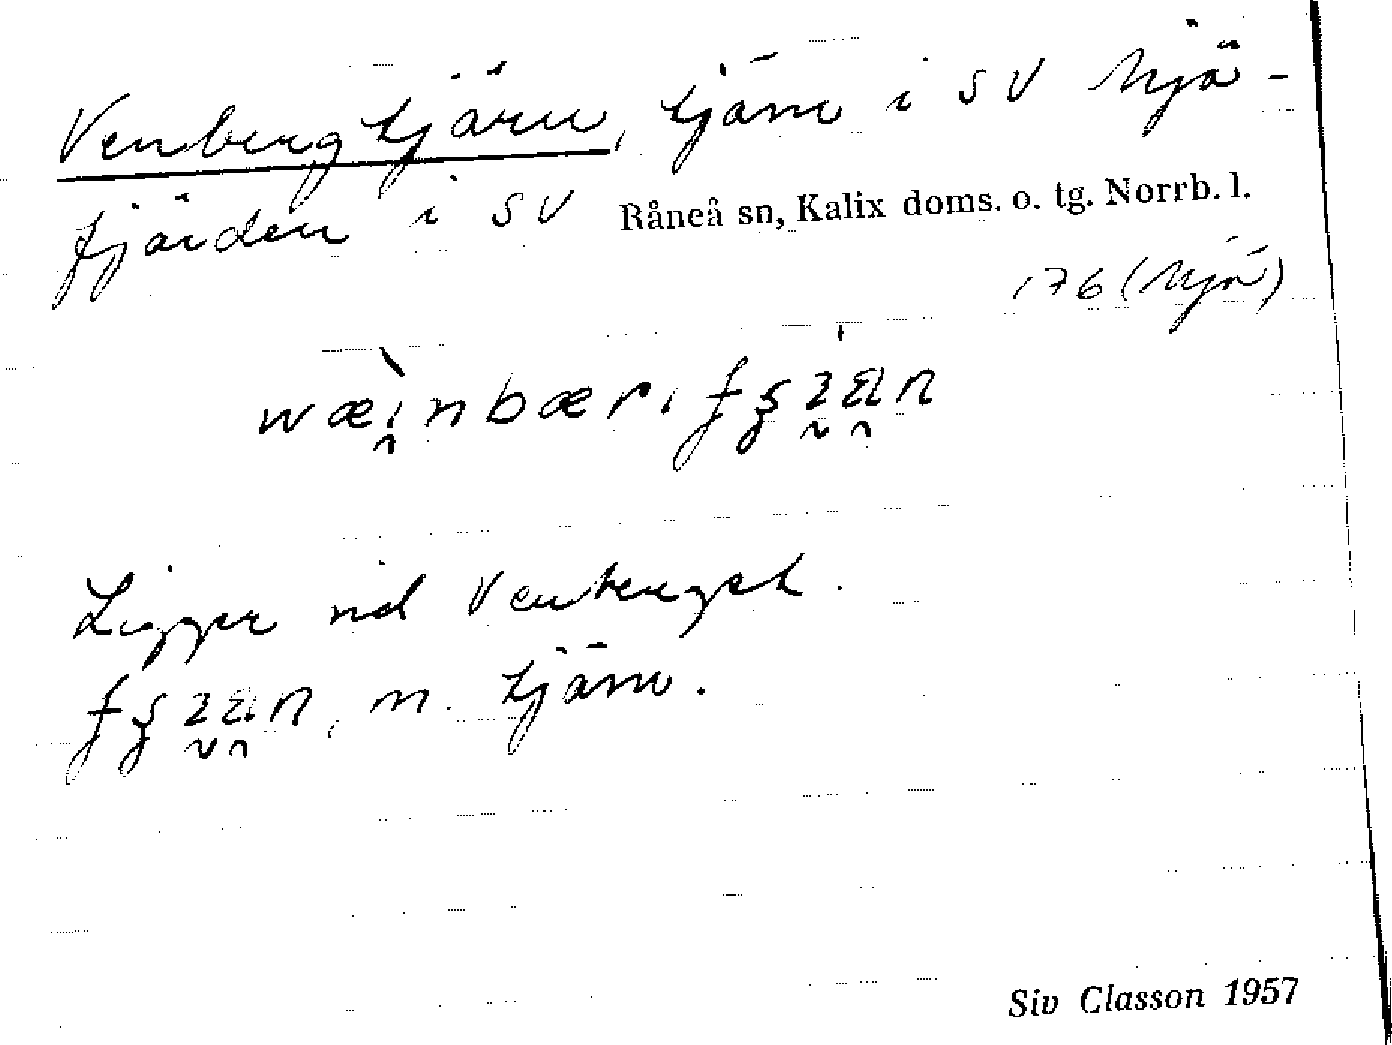 Venbergtjärn, tjärn i SV Mjö-
fjärden i SV Råneå sn, Kalix doms. o. tg. Norrb. l.
176 (Mjö)
Ligger vid Venberget.
m. tjärn.
Siv Classon 1957